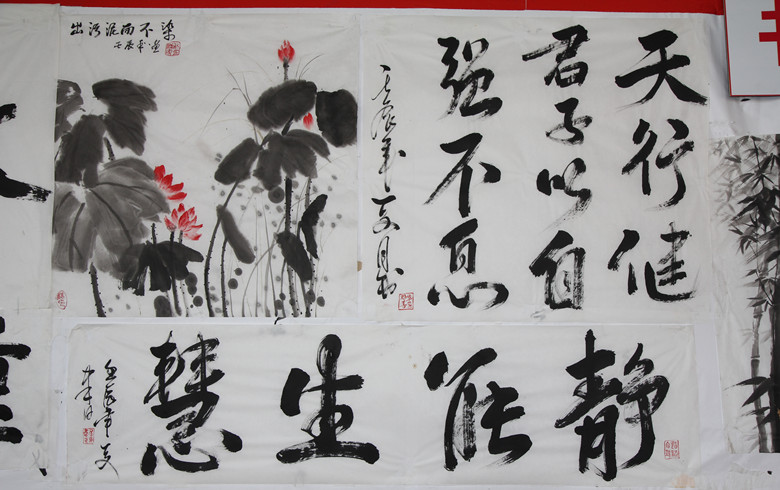 出污泥而不染
壬辰年
天行健
君子以自
强不息
壬辰年夏月书
静能生慧
壬辰年夏